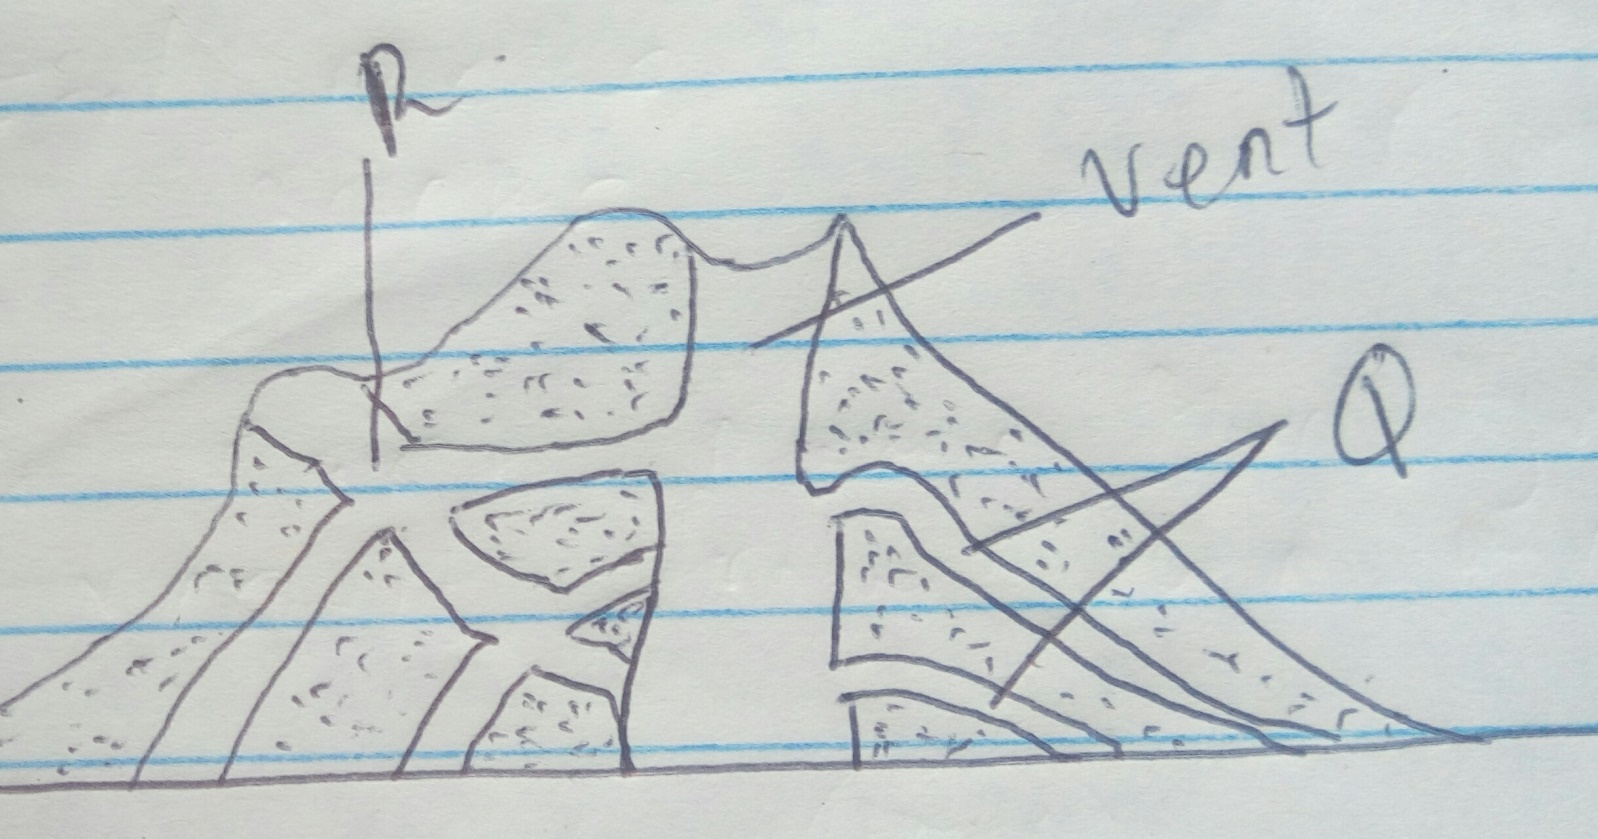 P
vent
Q